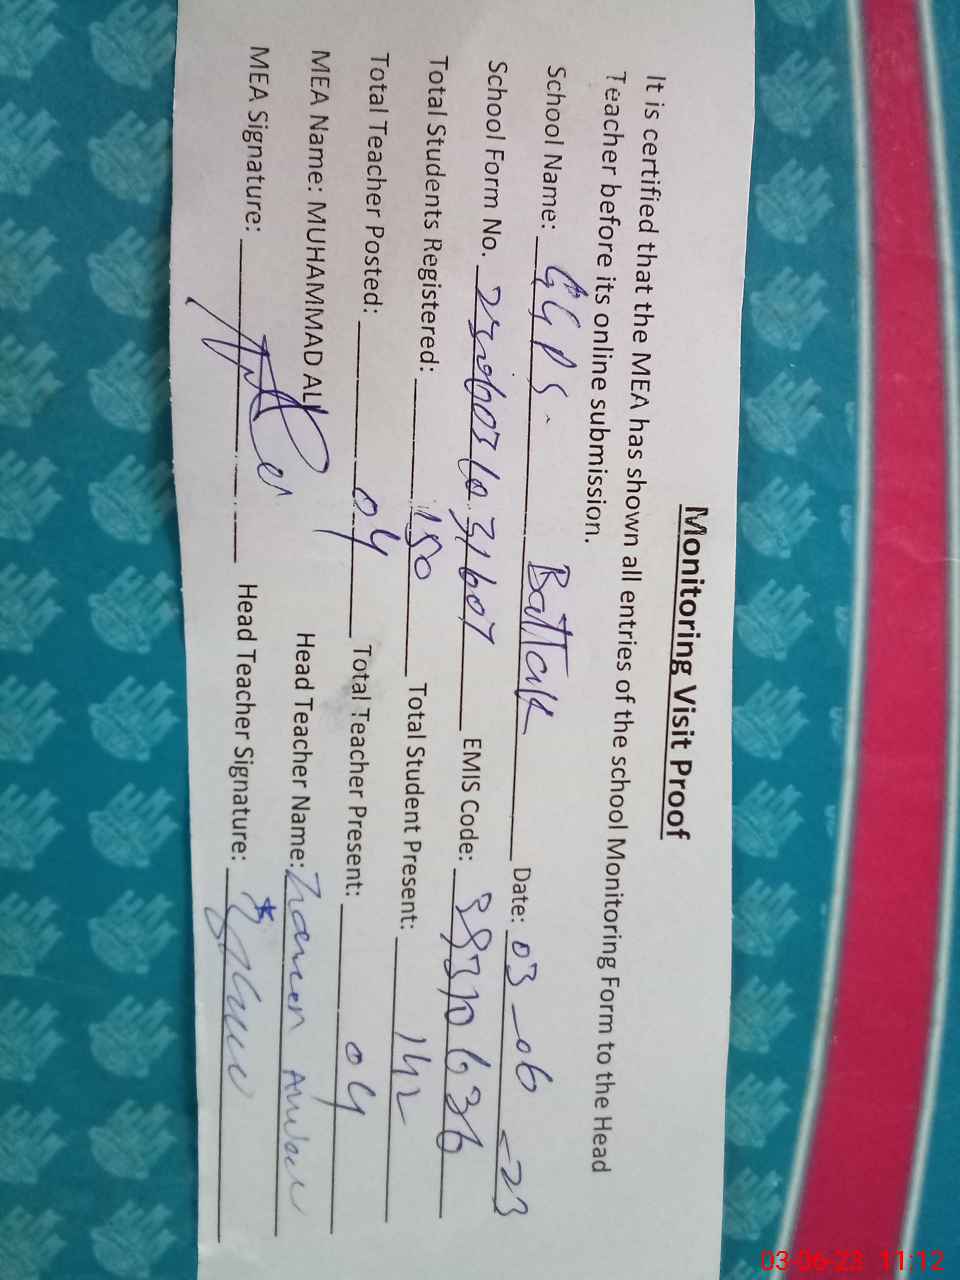 Monitoring Visit Proof
It is certified that the MEA has shown all entries of the school Monitoring Form to the Head
Teacher before its online submission.
School Name: GGPS. Date: 03-06-23
School Form No. EMIS Code:
Total Students Registered: 150 Total Student Present: 142
Total Teacher Posted: 04 Total Teacher Present: 04
MEA Name: MUHAMMAD ALI Head Teacher Name:
MEA Signature: Head Teacher Signature:
03-06-23 11:12